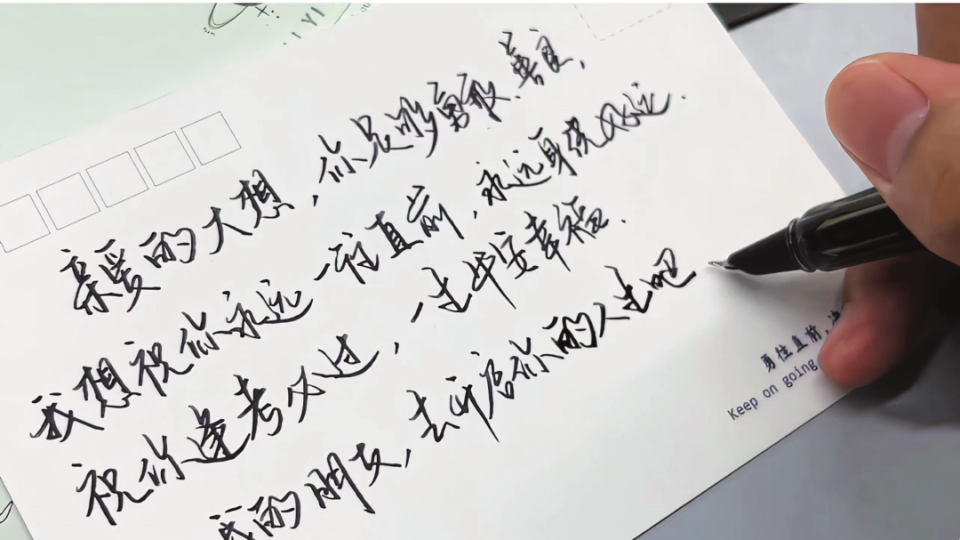 YI
亲爱的大想，你足够勇敢、善良，
我想祝你永远一往直前，永远身体欢迎.
祝你逢考必过，一生平安幸福.
我的朋友，去开启你的人生吧
勇往直前，
Keep on going